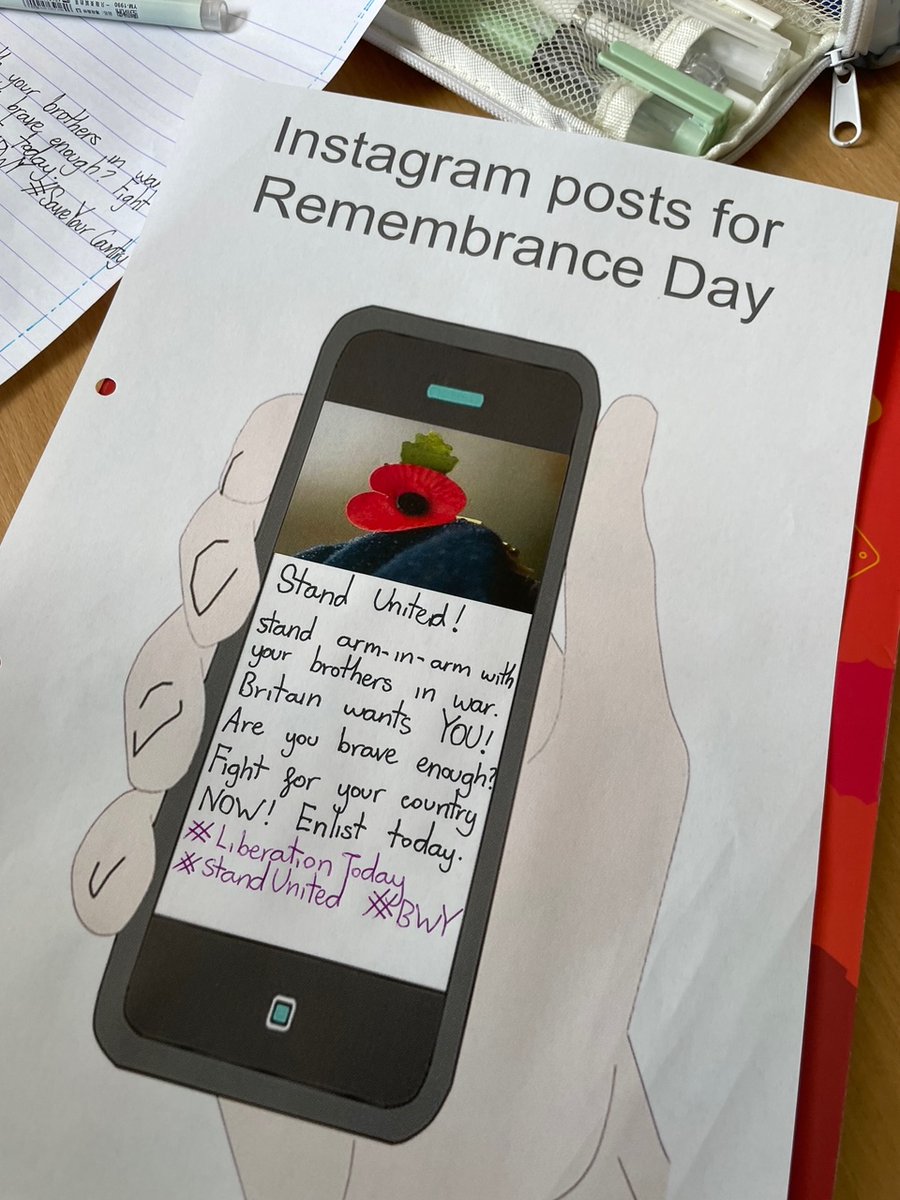 YM-1990
your brothers in war
brave enough? Fight
today.
#SaveYour Country
Instagram posts for
Remembrance Day
Stand United!
stand arm-in-arm with
your brothers in war.
Britain wants YOU!
Are you brave enough?
Fight for your country
NOW! Enlist today.
#Liberation Today
#StandUnited #BWY